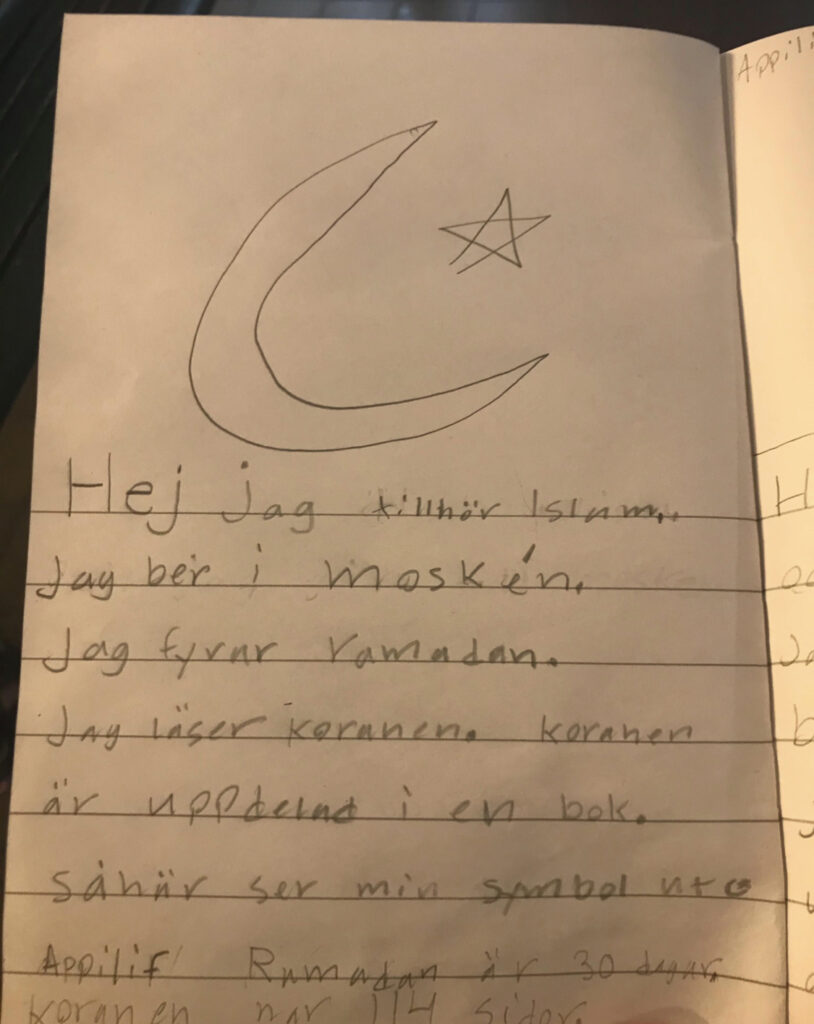 Appili
Hej jag tillhör Islam.
Jag ber i moskén.
Jag fyrar ramadan.
Jag läser koranen. koranen
är uppdelad i en bok.
såhär ser min symbol ut
Appilif Ramadan är 30 dagar.
koranen har 114 sidor.
H